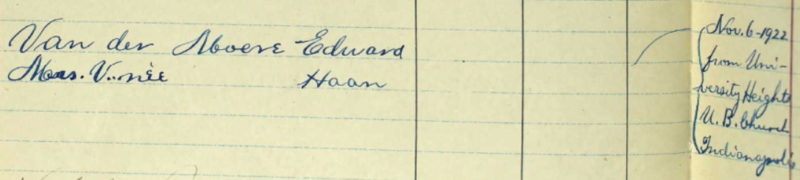 Van der Moere Edward
Mrs. V..née Haan
Nov. 6-1922
from Uni-
versity Heights
U. B. Church
Indianapolis